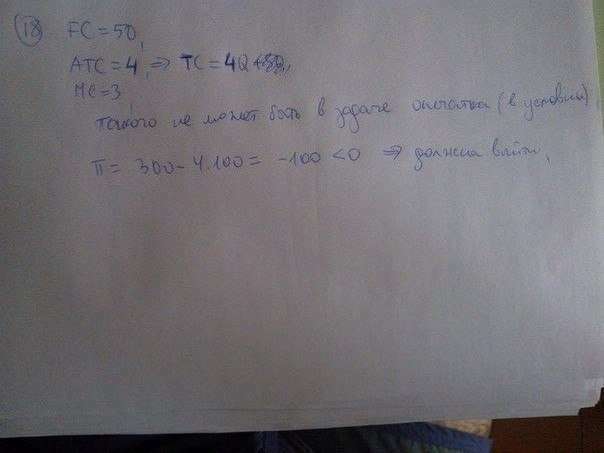 18 FC = 50,
ATC = 4, ⇒ TC = 4Q
MC = 3,
такого не может быть в задаче опечатка (в условии)
π = 300 - 4·100 = -100 < 0 ⇒ должна выйти,